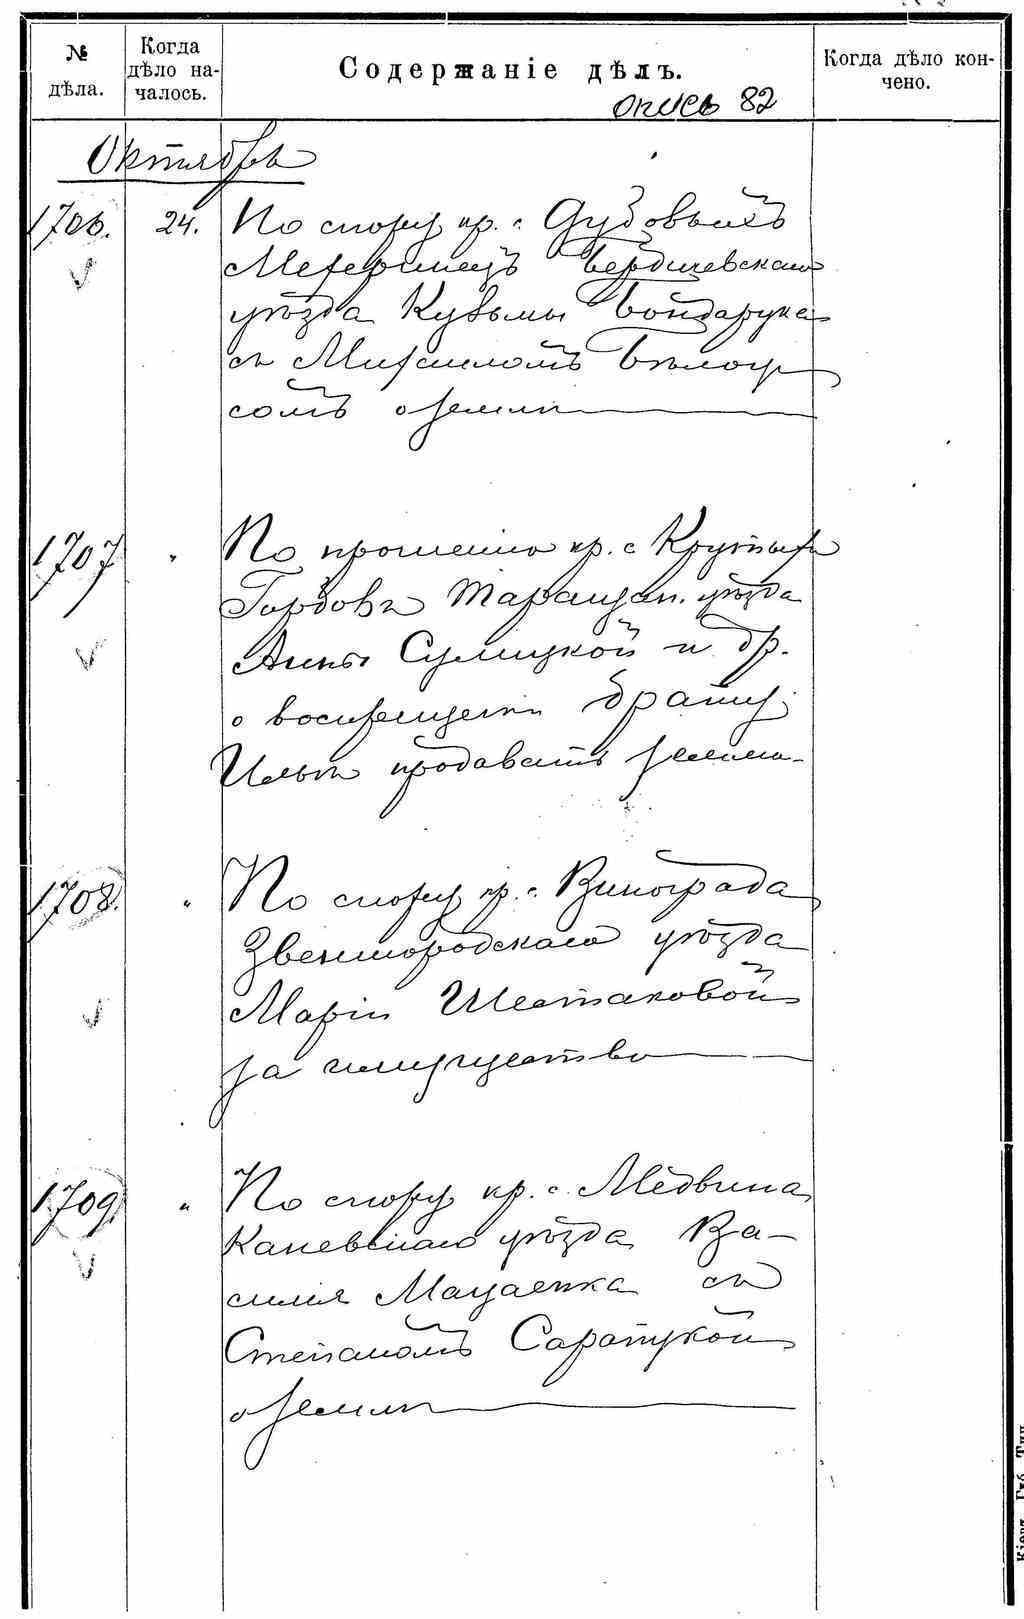 № дѣла.
Когда дѣло началось.
Содержаніе дѣлъ.
Когда дѣло кончено.
опись 82
Октябрь
1706. 24. По спору кр. с. Дубовыхъ
Мехеринецъ Бердичевскаго
уѣзда Кузьмы Бондарука
съ Михаиломъ Бѣлоу
сомъ о землѣ
1707 " По прошенію кр. с. Крутыхъ
Горбовъ Таращан. уѣзда
Анны Сулицкой и др.
о воспрещеніи брату
Ильѣ продавать землю.
1708. " По спору кр. с. Винограда
Звенигородскаго уѣзда
Маріи Шестаковой
за имущество
1709. " По спору кр. с. Медвина
Каневскаго уѣзда Ва-
силія Мацаенка съ
Степаномъ Сарапукой
о землѣ
Кіевъ. Губ. Тип.